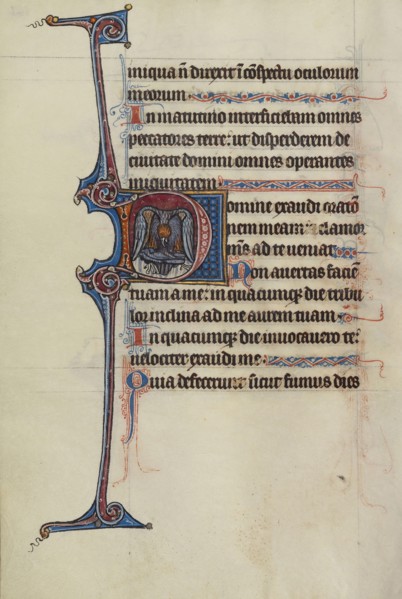 iniqua ñ direxit ĩ cõspectu oculorum
meorum
In matutino interficiebam omnes
peccatores terre: ut disperderem de
civitate domini omnes operantes
iniquitatem
Domine exaudi oratõ
nem meam: clamor
me͂s ad te veniat
Non avertas faciẽ
tuam a me: in quacumqꝫ die tribu
lor inclina ad me aurem tuam
In quacumqꝫ die invocavero te:
velociter exaudi me
Quia defecerunt sicut fumus dies